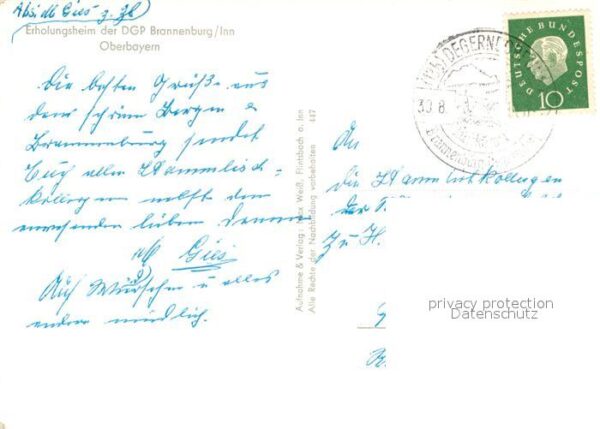 Absdb Gies z. Zt.
Erholungsheim der DGP Brannenburg/Inn
Oberbayern
Die besten Grüße aus
dem schönen Bergen
Brannenburg sendet
Euch allen Stammtisch-
kollegen nebst den
anwesenden lieben Damen
Gies
Auf Wiedersehn u alles
andere mündlich.
Aufnahme & Verlag: Max Weiß, Flintsbach a. Inn 447
Alle Rechte der Nachbildung vorbehalten
DEGERND
30.8.
Brannenburg
DEUTSCHE BUNDESPOST
10
An
die Stammtischkollegen
der
zu H.
privacy protection
Datenschutz